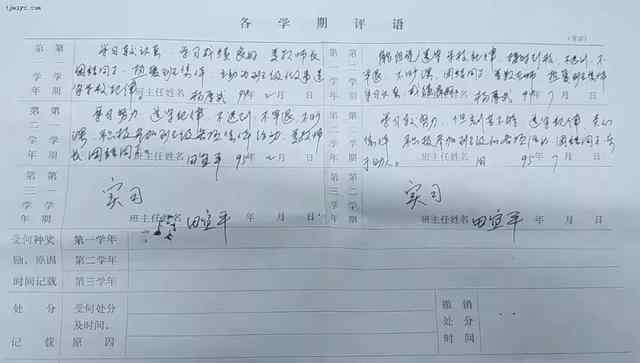 tjmzyz.com
各学期评语
第一学年
第一学期
学习较认真，学习成绩良好，尊敬师长
团结同学，热爱班集体，主动为班级做事，遵
守学校纪律。
班主任签名 94年 2月 日
第一学年
第二学期
能自觉遵守学校纪律，按时到校，不迟到、不
早退、不旷课，团结同学，尊敬老师，热爱班集体
学习认真
94年7月 日
第二学年
第一学期
学习努力，遵守纪律，不迟到、不早退、不旷
课，积极参加班级各项集体活动，尊敬师
长，团结同学。班主任签名 田宜平 95年2月 日
第二学年
第二学期
学习较努力，遵守纪律，关心
集体，积极参加班级的各项活动，团结同学，乐
于助人。班主任签名 田 95年7月 日
第三学年
第一学期
实习
班主任签名 田宜平 年 月 日
第三学年
第二学期
实习
班主任签名 田宜平 年 月 日
受何种奖励、原因时间记载
第一学年
第二学年
第三学年
处分记载
受何处分及时间、原因
撤销处分时间